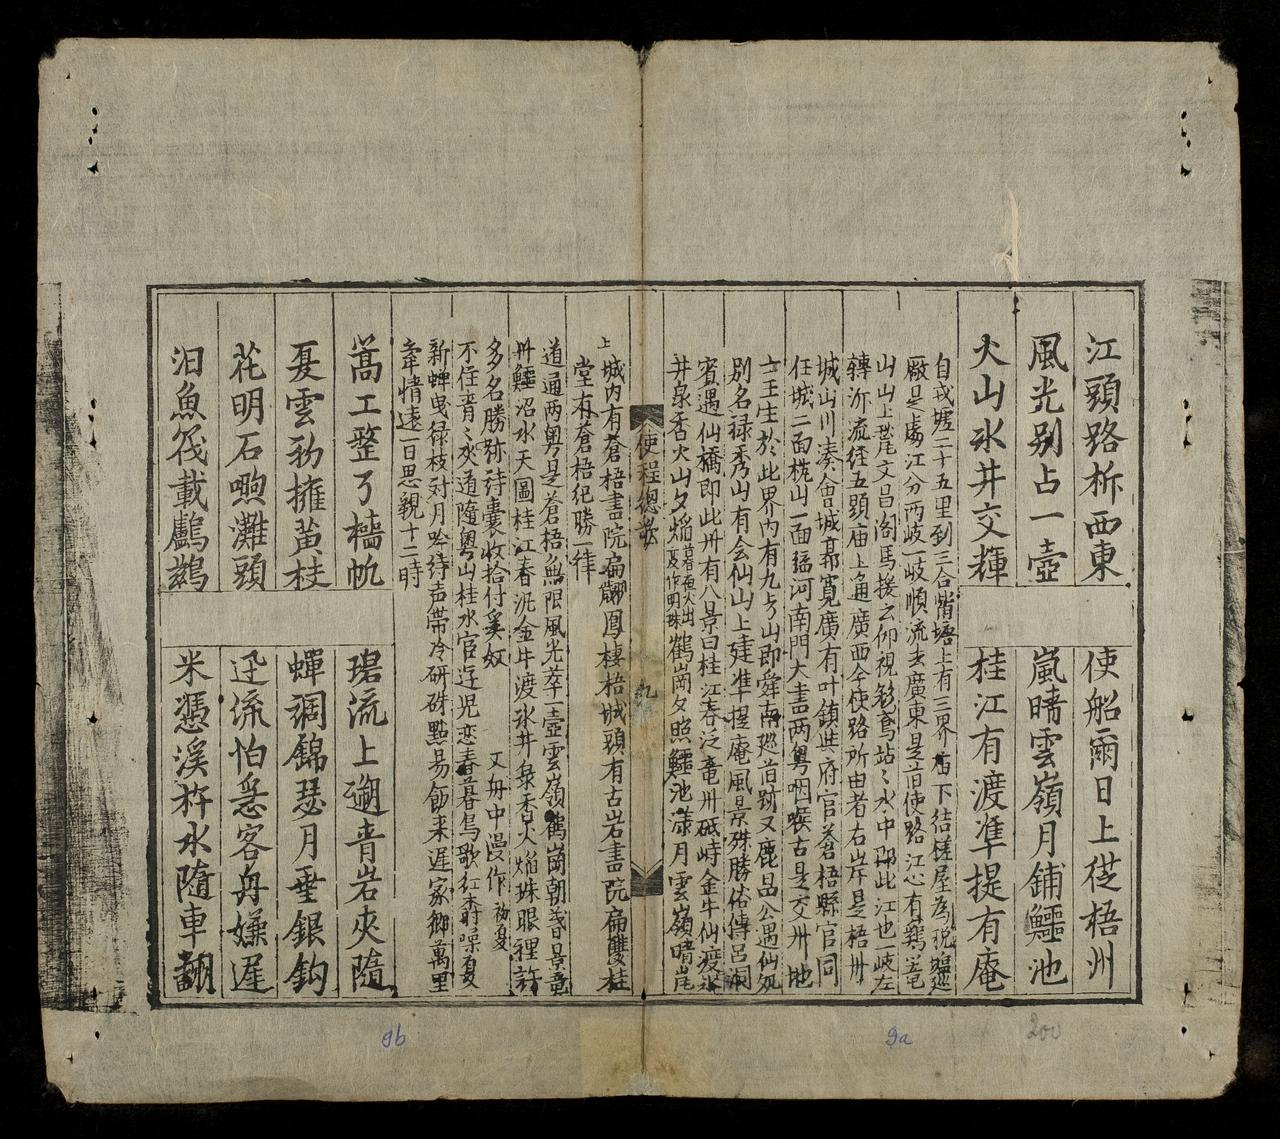 江頭路柝西東　使船爾日上從梧州
風光别占一壺　嵐晴雲嶺月鋪鱷池
火山氷井交輝　桂江有渡準提有庵
自戎墟二十五里到三合嘴塘上有三界庙下結槎屋為税
廠是處江分两岐一岐順流去廣東是前使路江心有鷄篭
山山上荒文昌阁馬援云仰視飛鳶站〻水中即此江也一岐左
轉泝流经五頭庙上通廣西今使路所由者右岸是梧州
城山川湊会城郭寬廣有叶鎮共府官蒼梧縣官同
在城二面挽山一面臨河南門大書两粤咽喉古是交州地
士王生於此界内有九山即舜南廵旧跡又鹿公遇仙
别名禄秀山有会仙山上建準提庵風景殊勝俗傳吕洞
賓遇仙橋即此州有八景曰桂江春泛竜州砥峙金牛仙渡氷
井泉香火山夕焔鶴岡夕照鱷池漾月雲嶺晴嵐
使程總歌
九
上城内有蒼梧書院扁翽鳳棲梧城頭有古岩書院扁雙桂
堂有蒼梧纪勝一律
道通两粤是蒼梧無限風光萃一壺雲嶺鶴崗朝暮景竜
州鱷沼水天圖桂江春汎金牛渡氷井泉香火焔珠眼裡許
多名勝跡詩囊收拾付奚奴　又舟中漫作初夏
不住青〻夾道隨粤山桂水官遲児恋春暮鳥歌紅樹噪夏
新蝉曳禄枝对月吟待声帯冷研硃點易飭来遲家鄉萬里
牽情遠一日思親十二時
蒿工整了檣帆　珺流上遡青岩夾隨
夏雲初擁苗枝　蟬调錦瑟月垂銀鈎
花明石喲灘頭　迅流怕急客舟嫌遲
泊魚筏載鸕鷀　米憑溪杵水隨車翻
9b
9a
200